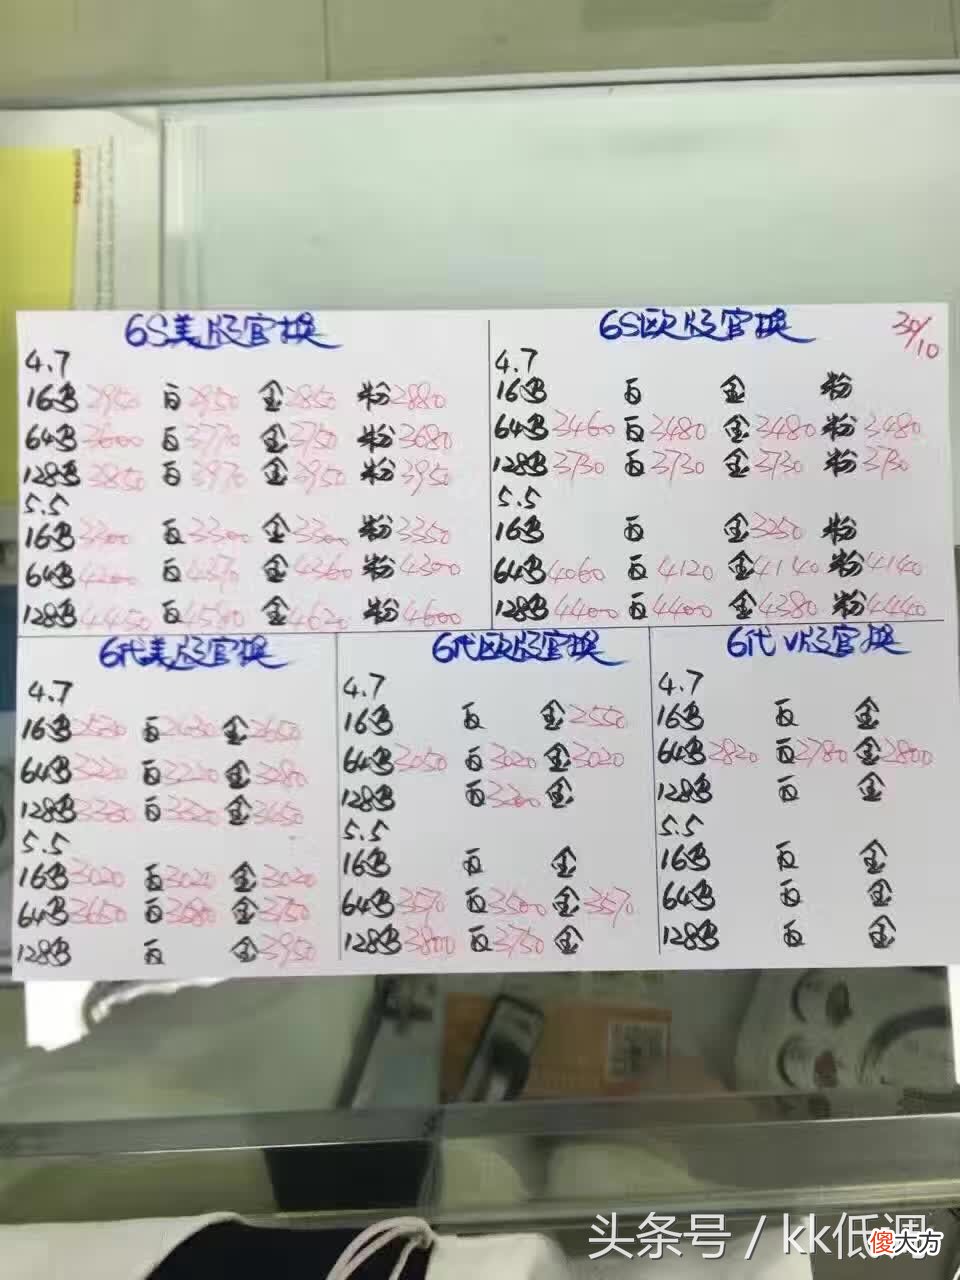 6S美版官换
4.7
16黑2950 白2950 金2850 粉2880
64黑3600 白3770 金3750 粉3680
128黑3850 白3970 金3950 粉3950
5.5
16黑3300 白3300 金3300 粉3350
64黑4200 白4370 金4360 粉4300
128黑4450 白4580 金4620 粉4600
6S欧版官换
30/10
4.7
16黑 白 金 粉
64黑3460 白3480 金3480 粉3480
128黑3730 白3730 金3730 粉3730
5.5
16黑 白 金3250 粉
64黑4060 白4120 金4140 粉4140
128黑4400 白4400 金4380 粉4440
6代美版官换
4.7
16黑2520 白2630 金2650
64黑3220 白3220 金3280
128黑3320 白3320 金3450
5.5
16黑3020 白3020 金3020
64黑3650 白3680 金3750
128黑 白 金3950
6代欧版官换
4.7
16黑 白 金2550
64黑3050 白3020 金3020
128黑 白3200 金
5.5
16黑 白 金
64黑3570 白3500 金3570
128黑3800 白3750 金
6代V版官换
4.7
16黑 白 金
64黑2820 白2780 金2800
128黑 白 金
5.5
16黑 白 金
64黑 白 金
128黑 白 金
头条号 / kk低调
傻大方